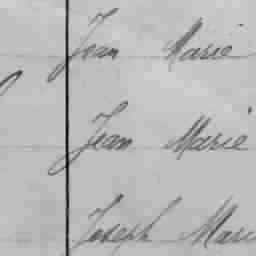 Jean Marie
Jean Marie
Joseph Mari